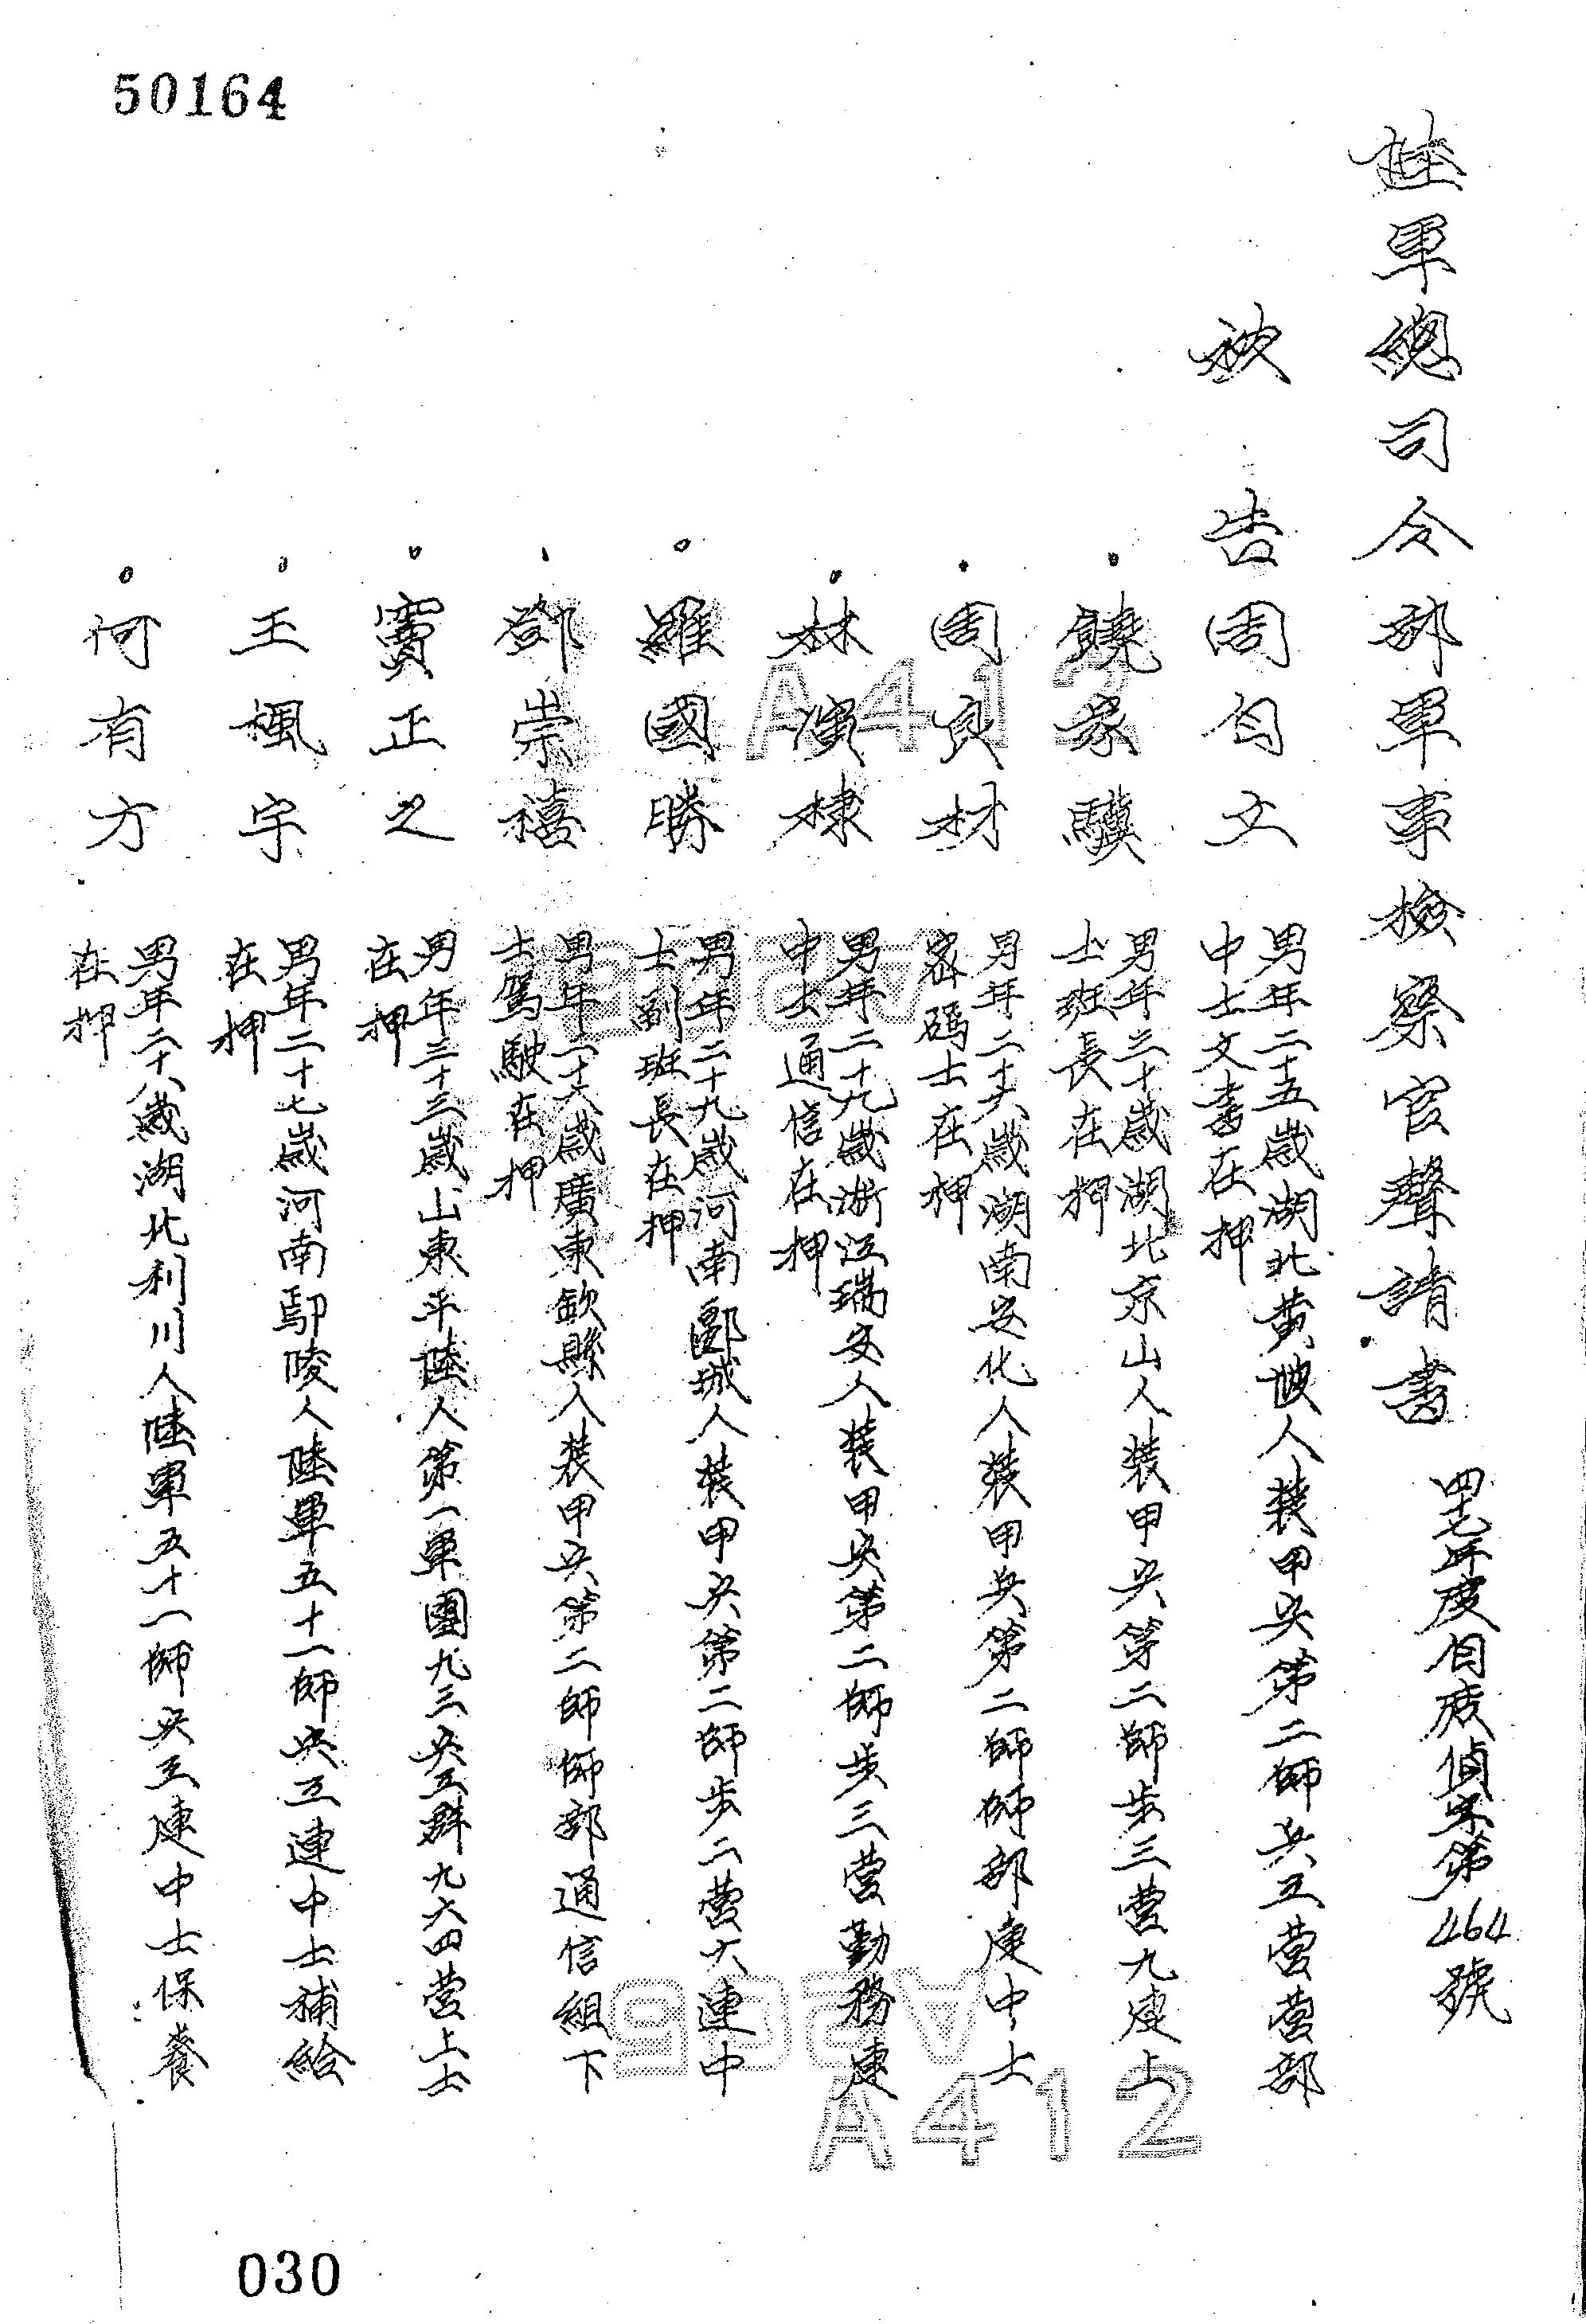 50164
陸軍總司令部軍事檢察官聲請書 四十七年度自度偵字第464號
被告周自文 男年二十五歲湖北黃陂人裝甲兵第二師兵工營營部
中士文書在押
饒家驥 男年三十歲湖北京山人裝甲兵第二師步三營九連上
士班長在押
周良材 男年二十六歲湖南安化人裝甲兵第二師師部連中士
密碼士在押
林演棣 男年二十九歲浙江瑞安人裝甲兵第二師步三營勤務連
中士通信在押
羅國勝 男年二十九歲河南郾城人裝甲兵第二師步二營六連中
士副班長在押
鄧崇禧 男年二十六歲廣東欽縣人裝甲兵第二師師部通信組下
士駕駛在押
竇正之 男年三十三歲山東平陸人第一軍團九三兵工群九六四營上士
在押
王楓宇 男年二十七歲河南鄢陵人陸軍五十一師兵工連中士補給
在押
何有方 男年二十八歲湖北利川人陸軍五十一師兵工連中士保養
在押
A412
A505
A505
A412
030